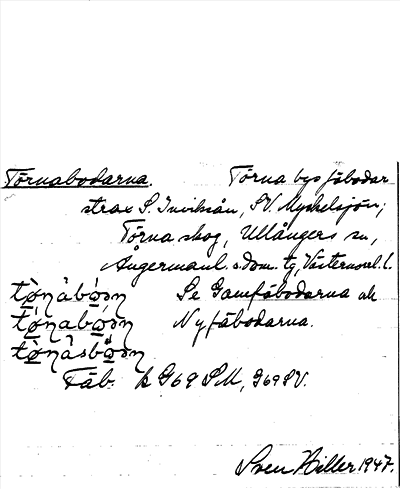 Törnabodarna. Törna bys fäbodar
strax S. Inviksån, SV. Myckelsjön;
Törna skog, Ullångers sn,
Ångermanl. s. dom. tg, Västernorrl. l.
Se Gamfäbodarna och
Nyfäbodarna.
Fäb. k G69 SM, G69SV.
Sven Hiller 1947.